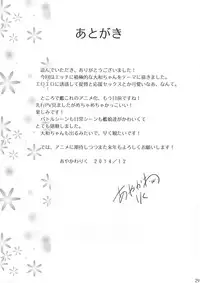 あとがき
読んでいただき、ありがとうございました!
今回はエッチに積極的な大和ちゃんをテーマに描きました。
エロエロに誘惑して提督と応援セックスとか可愛いなあ、なんて。
ところで艦これのアニメ化、もう目前ですね!
先行PV見ましたがめちゃめちゃかっこいい!
楽しみです!
バトルシーンも日常シーンも艦娘達がかわいくて
大和ちゃんも出るみたいで、早く観たいです!
では、アニメに期待しつつまた来年もよろしくお願いします!
あやかわりく 2014/12
あやかわ
りく
29